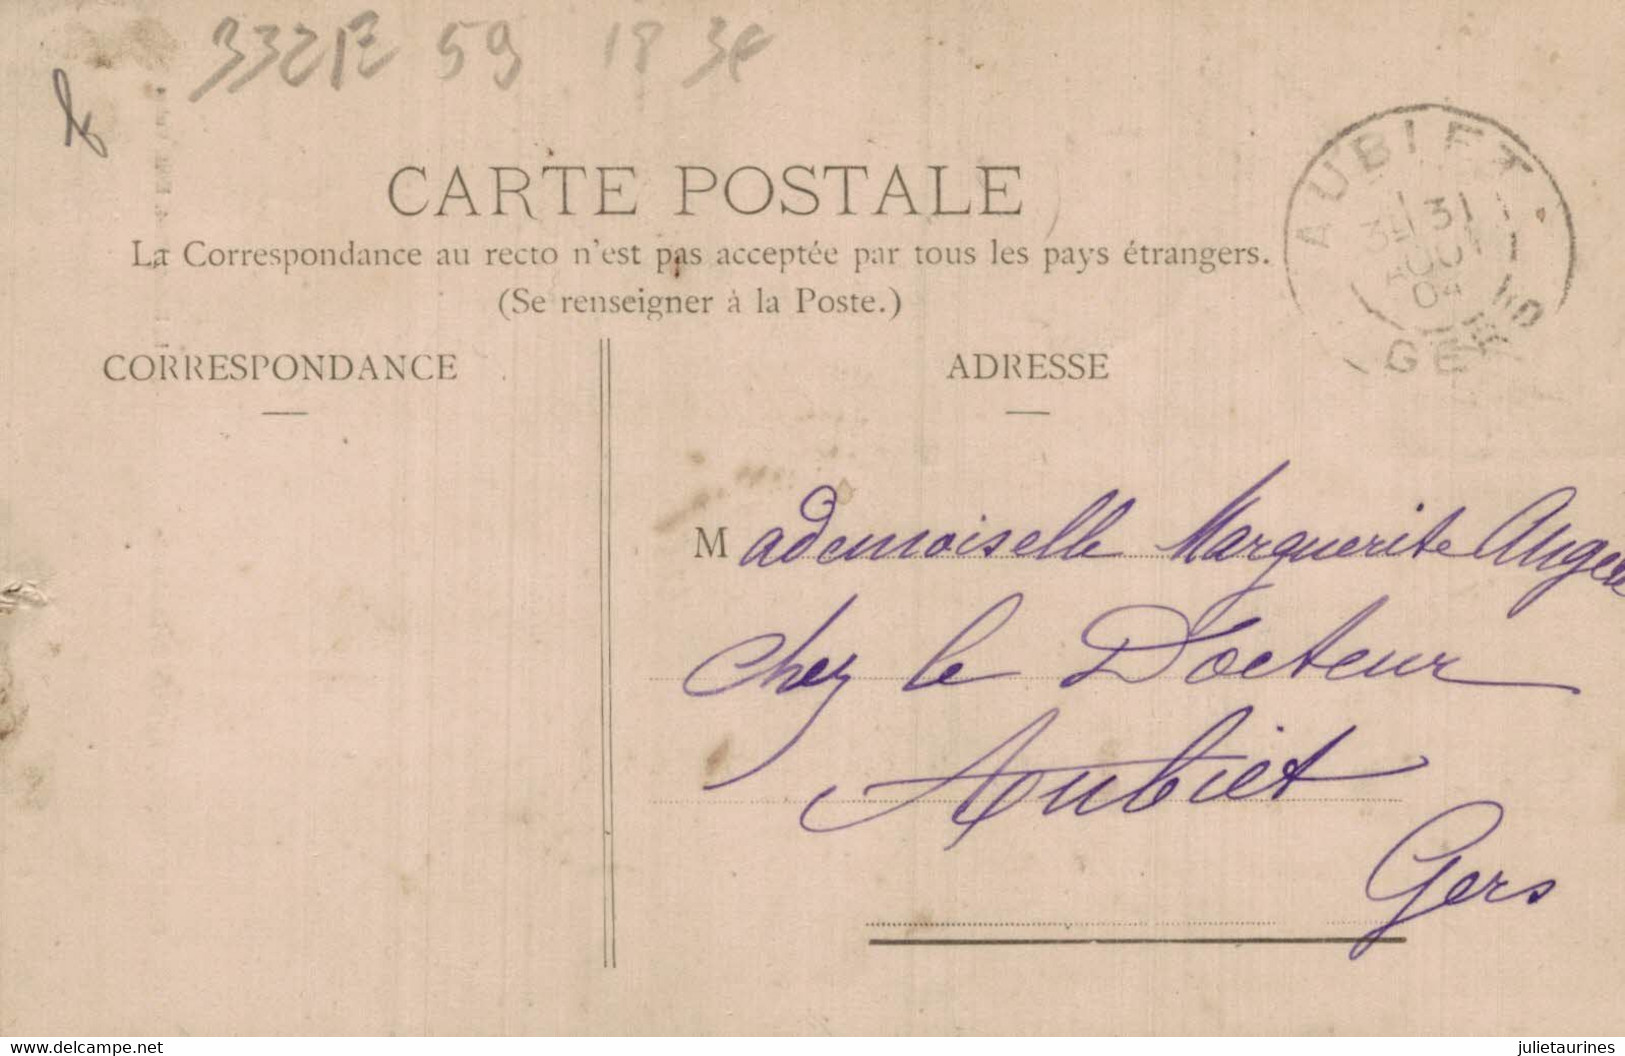 332E 59 18 34
CARTE POSTALE
La Correspondance au recto n'est pas acceptée par tous les pays étrangers.
(Se renseigner à la Poste.)
AUBIET
31
AOUT
04
GERS
CORRESPONDANCE
ADRESSE
Mademoiselle Marguerite
chez le Docteur
Aubiet
Gers
www.delcampe.net
julietaurines